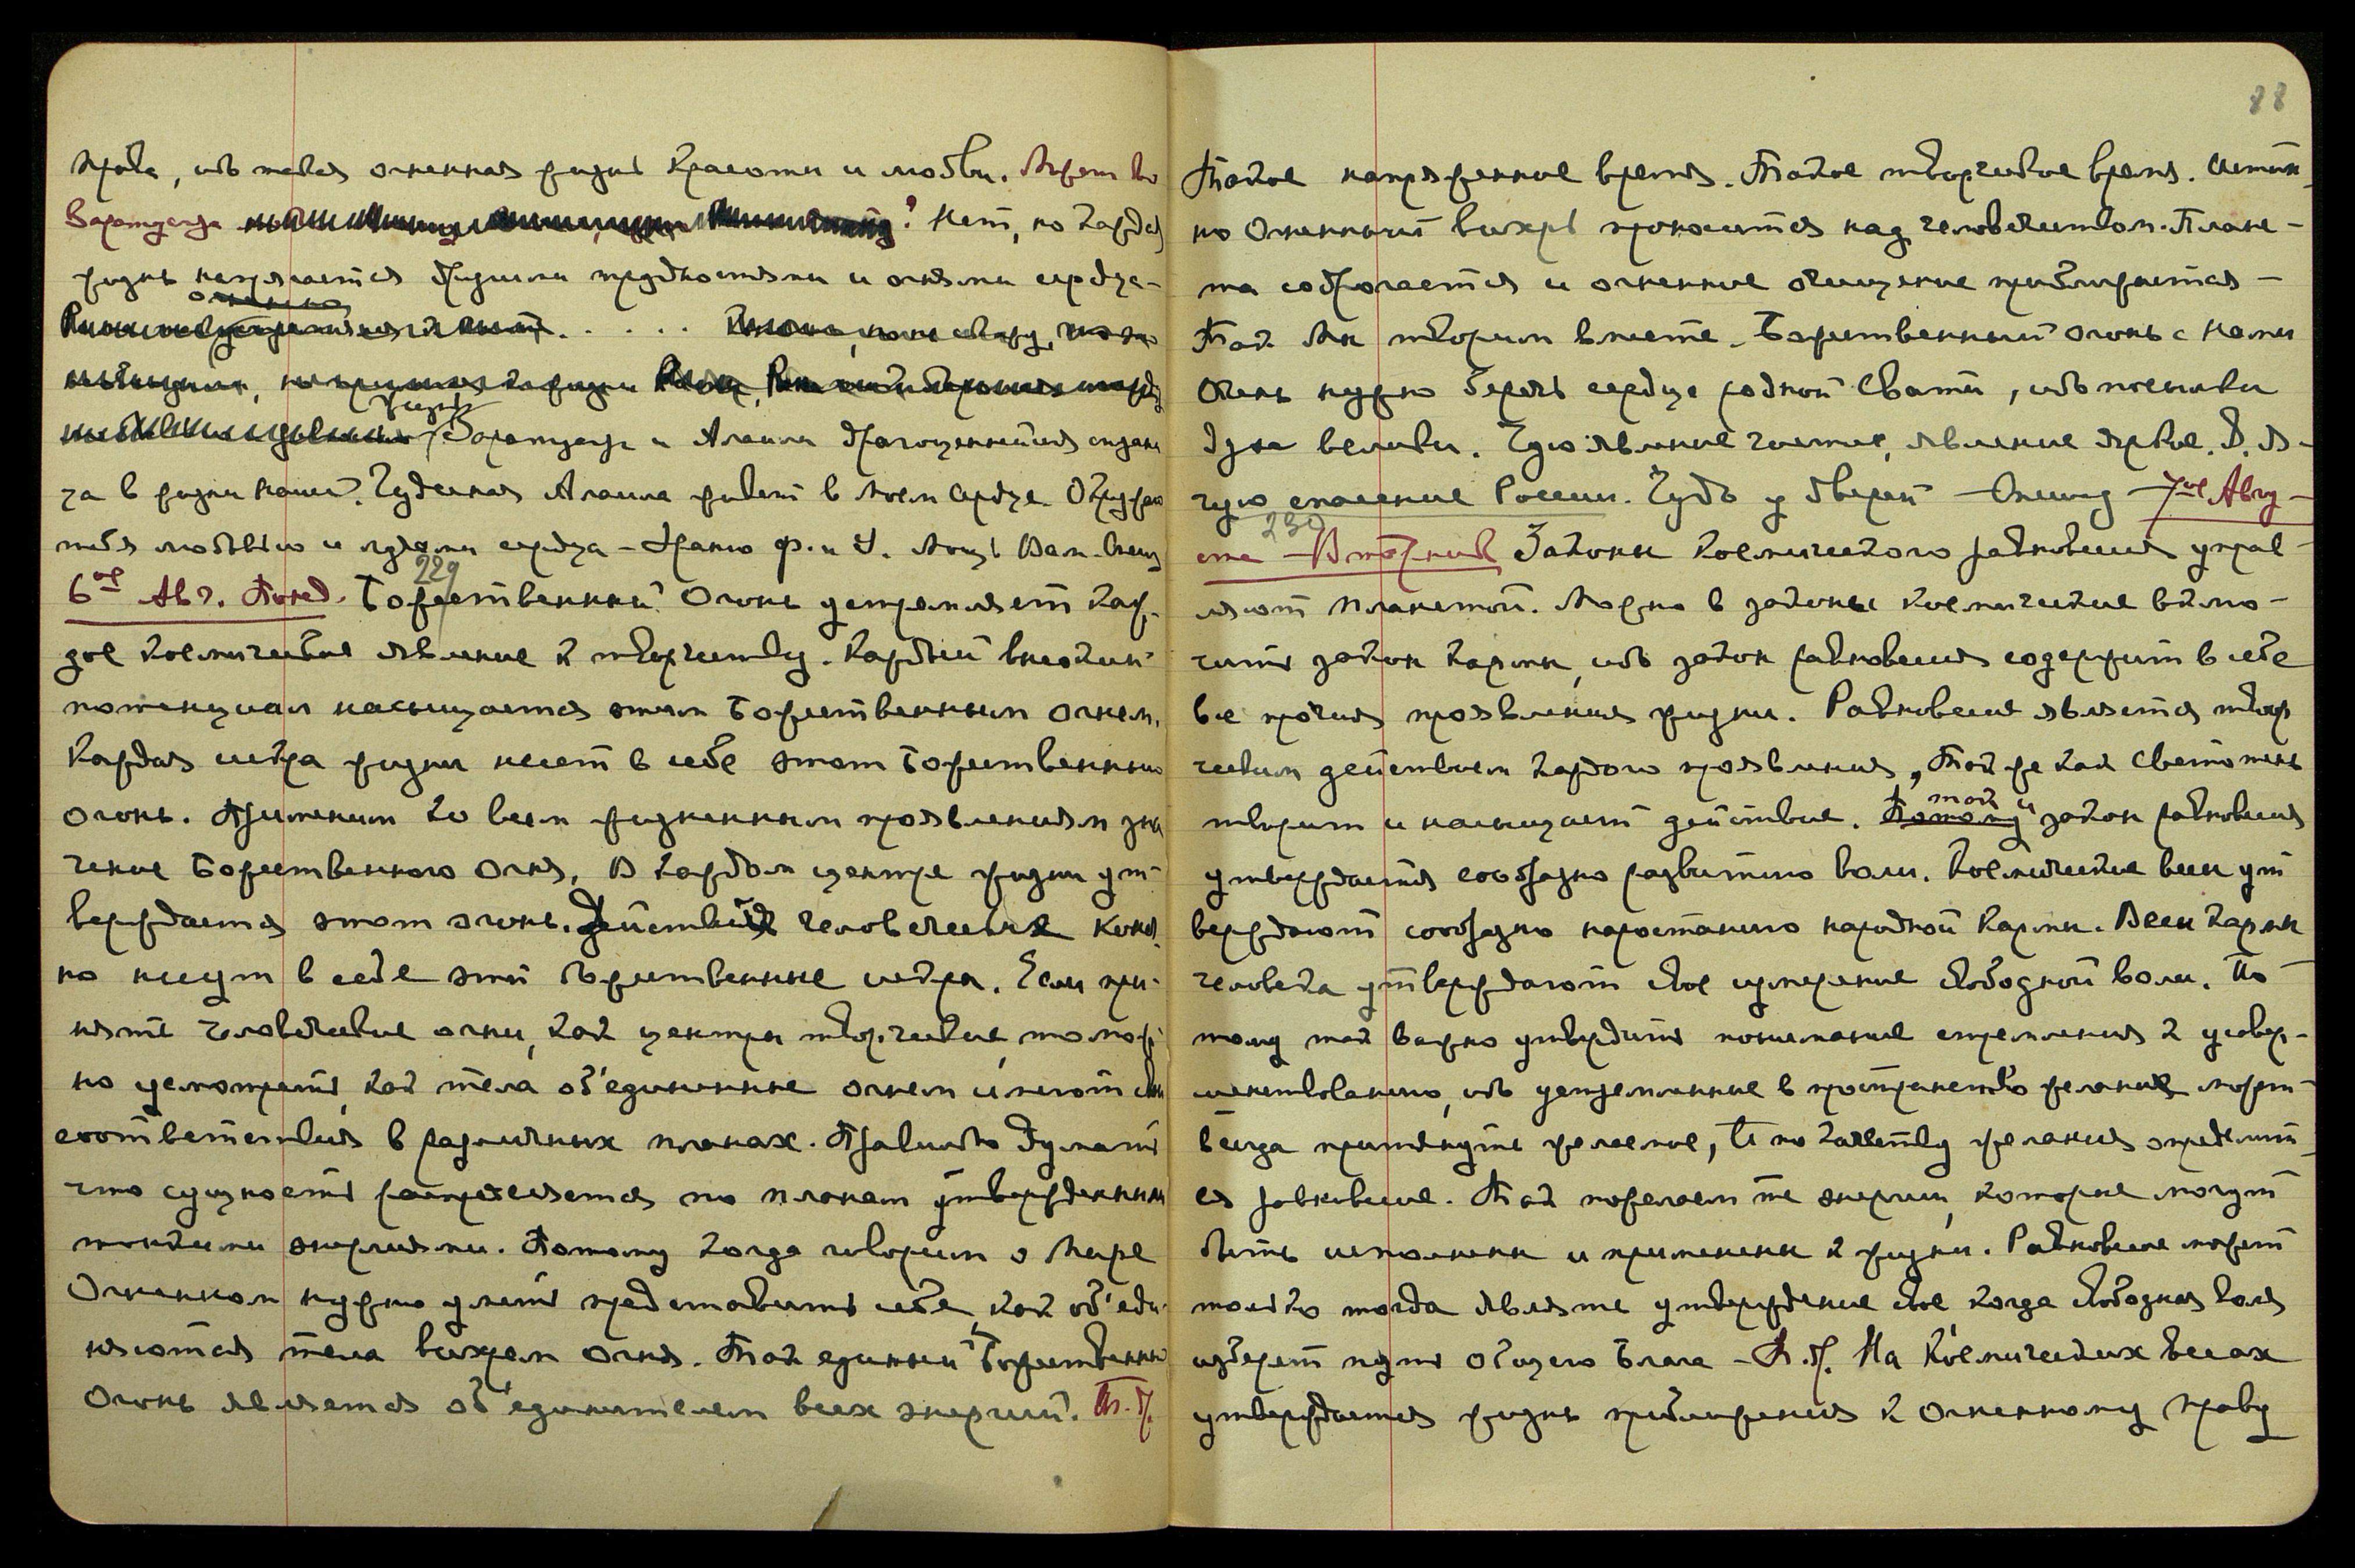 права, ибо такая огненная жизнь красоты и любви. Может ли
Заратуштра ? Нет, но каждая
жизнь напрягается другими трудностями и огнями сердца-
огненно
. . . . .
жизнь
Заратуштр и Алаили драгоценнейшая страни
ца в жизни нашей. Чудесная Алаила живет в моем сердце. Окружаю
тебя любовью и лучами сердца – Храню Ф. и У. Мощь Вам.
229
6ое Авг. Понед. Божественный Огонь устремляет каж-
дое космическое явление к творчеству. Каждый
потенциал насыщается этим Божественным огнем.
Каждая искра жизни несет в себе этот Божественный
огонь. Применим ко всем жизненным проявлениям зна
чение Божественного Огня. В каждом центре жизни ут-
верждается этот огонь. Действия человеческие конеч
но несут в себе эти божественные искры. Если при-
нять человеческие огни, как центры творческие, то мож
но усмотреть, как тела об'единенные огнем имеют свои
соответствия в различных планах. Правильно думать
что сущность распределяется по планам утвержденным
тонкими энергиями. Потому когда говорим о Мире
Огненном нужно уметь представить себе, как об'еди-
няются тела вихрем огня. Так единый Божественный
Огонь является об'единителем всех энергий. Т. д.
88
Такое напряженное время. Такое творческое время. Истин-
но Огненный вихрь проносится над человечеством. Плане-
та содрогается и огненное очищение приближается –
Так Мы творим вместе. Божественный огонь с нами
Очень нужно беречь сердце родной Свати, ибо посылки
духа велики. Чую явление счастия, явление яркое. В. Я -
чую спасение России. Чудо у дверей – – 7ое Авгу-
230
ста – Вторник Законы космического равновесия управ-
ляют планетой. Можно в законы космические вклю-
чить закон кармы, ибо закон равновесия содержит в себе
все прочия проявления жизни. Равновесие является твор
ческим действием каждого проявления, Так же как светотень
так и
творит и насыщает действие. Потому закон равновесия
утверждается сообразно развитию воли. Космические весы ут
верждают сообразно нарастанию народной кармы. Весы кармы
человека утверждают свое измерение свободной воли. По
тому так важно утвердить понимание стремления к усовер-
шенствованию, ибо устремленные в пространство желания могут
всегда притянуть желаемое, И по качеству желания определит-
ся равновесие. Так пожелаем те энергии, которые могут
быть исполнены и применены к жизни. Равновесие может
только тогда явлать утверждение свое когда свободная воля
изберет путь общего блага – Т. д. На космических весах
утверждается жизнь приближения к Огненному праву